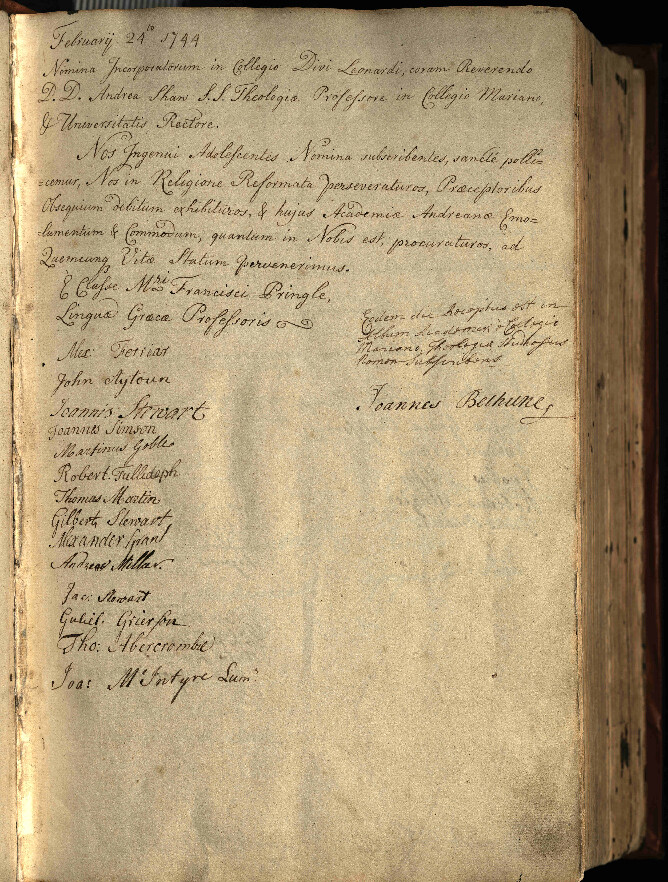 Februarij 24to 1744
Nomina Incorporatorum in Collegio Divi Leonardi, coram Reverendo
D. D. Andrea Shaw S.S. Theologiæ Professore in Collegio Mariano,
& Universitatis Rectore.
Nos Ingenui Adolescentes Nomina subscribentes, sanctè polli=
=cemur, Nos in Religione Reformata perseveraturos, Præceptoribus
Obsequium debitum exhibituros, & hujus Academiæ Andreanæ Emo=
=lumentum & Commodum, quantum in Nobis est, procuraturos, ad
Quemcunq Vitæ Statum pervenerimus.
E Classe Mri Francisci Pringle,
Linguæ Græcæ Professoris
Alex: Ferriar
John Aytoun
Joannis Stewart
Joannes Simson
Martinus Goble
Robert Fullidoph
Thomas Martin
Gilbert Stewart
Alexander Grant
Andreas Millar.
Jac: Stewart
Guliel. Grierson
Tho: Abercrombie
Joa: McIntyre Lum
Eodem die Receptus est in
Album Academiæ è Collegio
Mariano, Theologiæ Studiosus
Nomen Subscribens
Joannes Bethune,